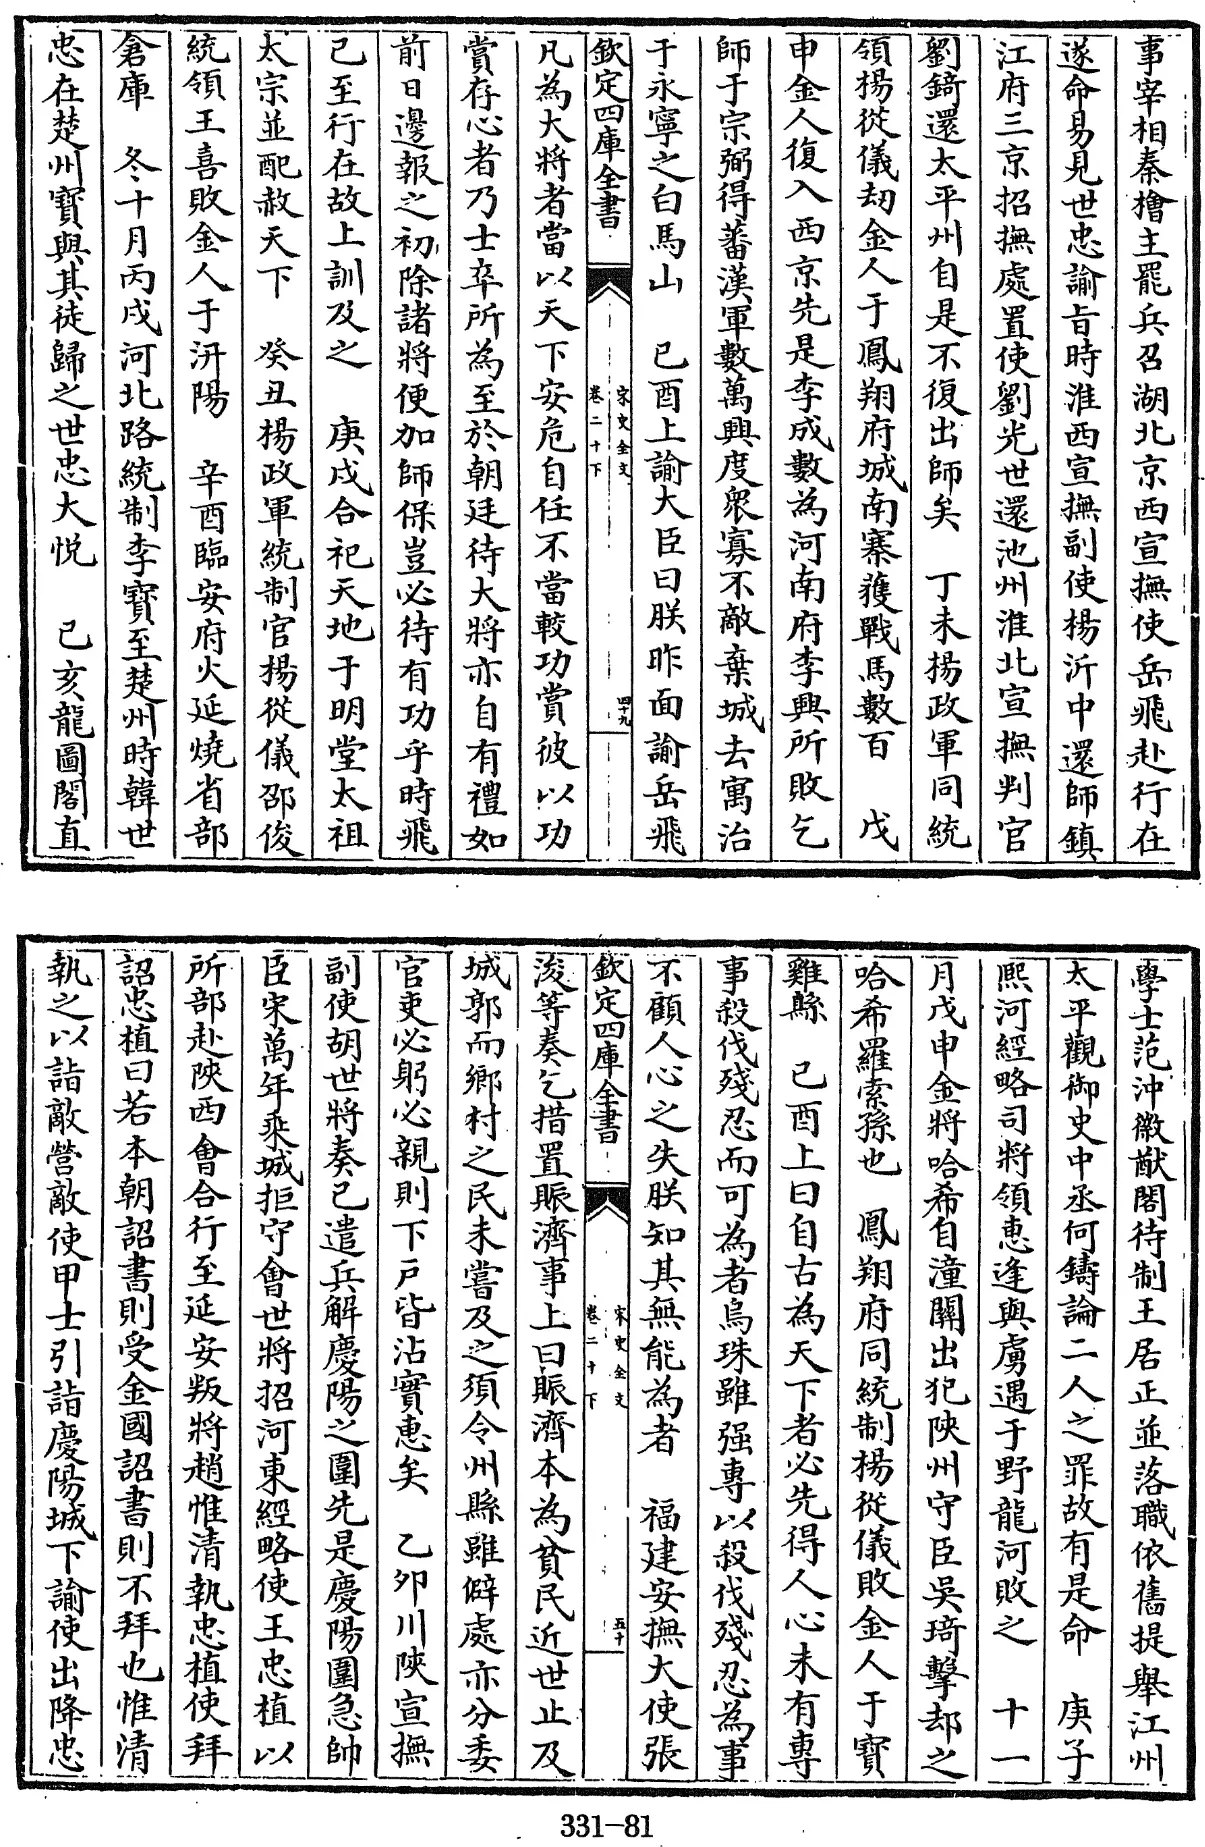 事宰相秦檜主罷兵召湖北京西宣撫使岳飛赴行在
遂命易見世忠諭旨時淮西宣撫副使楊沂中還師鎮
江府三京招撫處置使劉光世還池州淮北宣撫判官
劉錡還太平州自是不復出師矣　丁未楊政軍同統
領楊從儀刧金人于鳳翔府城南寨獲戰馬數百　戊
申金人復入西京先是李成數為河南府李興所敗乞
師于宗弼得蕃漢軍數萬興度衆寡不敵棄城去寓治
于永寧之白馬山　已酉上諭大臣曰朕昨面諭岳飛
欽定四庫全書
宋史全文
卷二十下
四十九
凡為大將者當以天下安危自任不當較功賞彼以功
賞存心者乃士卒所為至於朝廷待大將亦自有禮如
前日邊報之初除諸將便加師保豈必待有功乎時飛
已至行在故上訓及之　庚戌合祀天地于明堂太祖
太宗並配赦天下　癸丑楊政軍統制官楊從儀邵俊
統領王喜敗金人于汧陽　辛酉臨安府火延燒省部
倉庫　冬十月丙戌河北路統制李寳至楚州時韓世
忠在楚州寳與其徒歸之世忠大悦　已亥龍圖閣直
學士范沖徽猷閣待制王居正並落職依舊提舉江州
太平觀御史中丞何鑄論二人之罪故有是命　庚子
熈河經略司將領惠逢與虜遇于野龍河敗之　十一
月戊申金將哈希自潼關出犯陜州守臣吳琦擊却之
哈希羅索孫也　鳳翔府同統制楊從儀敗金人于寳
雞縣　已酉上曰自古為天下者必先得人心未有專
事殺伐殘忍而可為者烏珠雖强專以殺伐殘忍為事
不顧人心之失朕知其無能為者　福建安撫大使張
欽定四庫全書
宋史全文
卷二十下
五十
浚等奏乞措置賑濟事上曰賑濟本為貧民近世止及
城郭而鄉村之民未嘗及之須令州縣雖僻處亦分委
官吏必躬必親則下戸皆沾實惠矣　乙卯川陜宣撫
副使胡世將奏已遣兵解慶陽之圍先是慶陽圍急帥
臣宋萬年乘城拒守會世將招河東經略使王忠植以
所部赴陜西會合行至延安叛將趙惟清執忠植使拜
詔忠植曰若本朝詔書則受金國詔書則不拜也惟清
執之以詣敵營敵使甲士引詣慶陽城下諭使出降忠
331-81